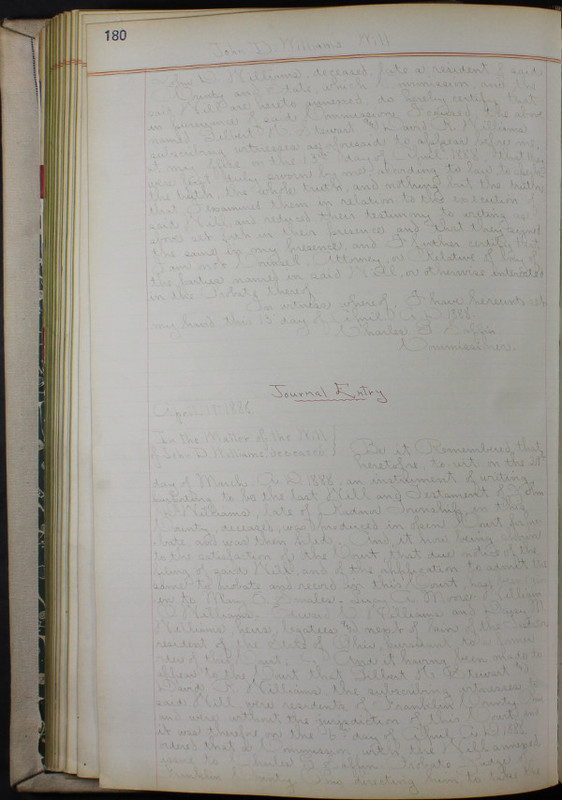 180
John D. Williams Will
John D. Williams, deceased, late a resident of said
County and State, which Commission and the
said Will are hereto annexed do hereby certify that
in pursuance of said Commission, I caused the above
named Gilbert H. Stewart and David K. Williams
subscribing witnesses as aforesaid to appear before me,
at my office on the 13th day of April 1888. That they
were first duly sworn by me, according to law to speak
the truth, the whole truth, and nothing but the truth;
that I examined them in relation to the execution of
said Will, and reduced their testimony to writing as
above set forth in their presence and that they signed
the same in my presence, and I further certify that
I am not Counsel, Attorney, or Relative of any of
the parties named in said Will, or otherwise interested
in the Probate thereof.
In witness whereof, I have hereunto set
my hand this 13 day of April A.D. 1888.
Charles G.
Commissioner.
Journal Entry
April 1888
In the Matter of the Will
of John D Williams, deceased
Be it Remembered that
heretofore, to-wit: on the
day of March A. D. 1888, an instrument of writing,
purporting to be the last Will and Testament of John
D. Williams, late of Township in this
County, deceased, was produced in open Court for pro-
bate, and was then filed. And, it now being shown
to the satisfaction of the Court, that due notice of the
filing of said Will, and of the application to admit the
same to probate and record in this Court, has been giv-
en to Mary E. Lucy A. Moore,
Williams, Williams and M.
Williams, heirs, legatees and next of kin of the Testator
resident of the State of Ohio, pursuant to a former
order of this Court. And it having been made to
appear to the Court that Gilbert H. Stewart and
David K. Williams, the subscribing witnesses to
said Will were residents of Franklin County
and were without the jurisdiction of this Court and
it was therefore on the 6th day of April A. D. 1888
ordered that a Commission with the Will annexed
issue to Charles G. Probate Judge of
Franklin County, directing him to take the